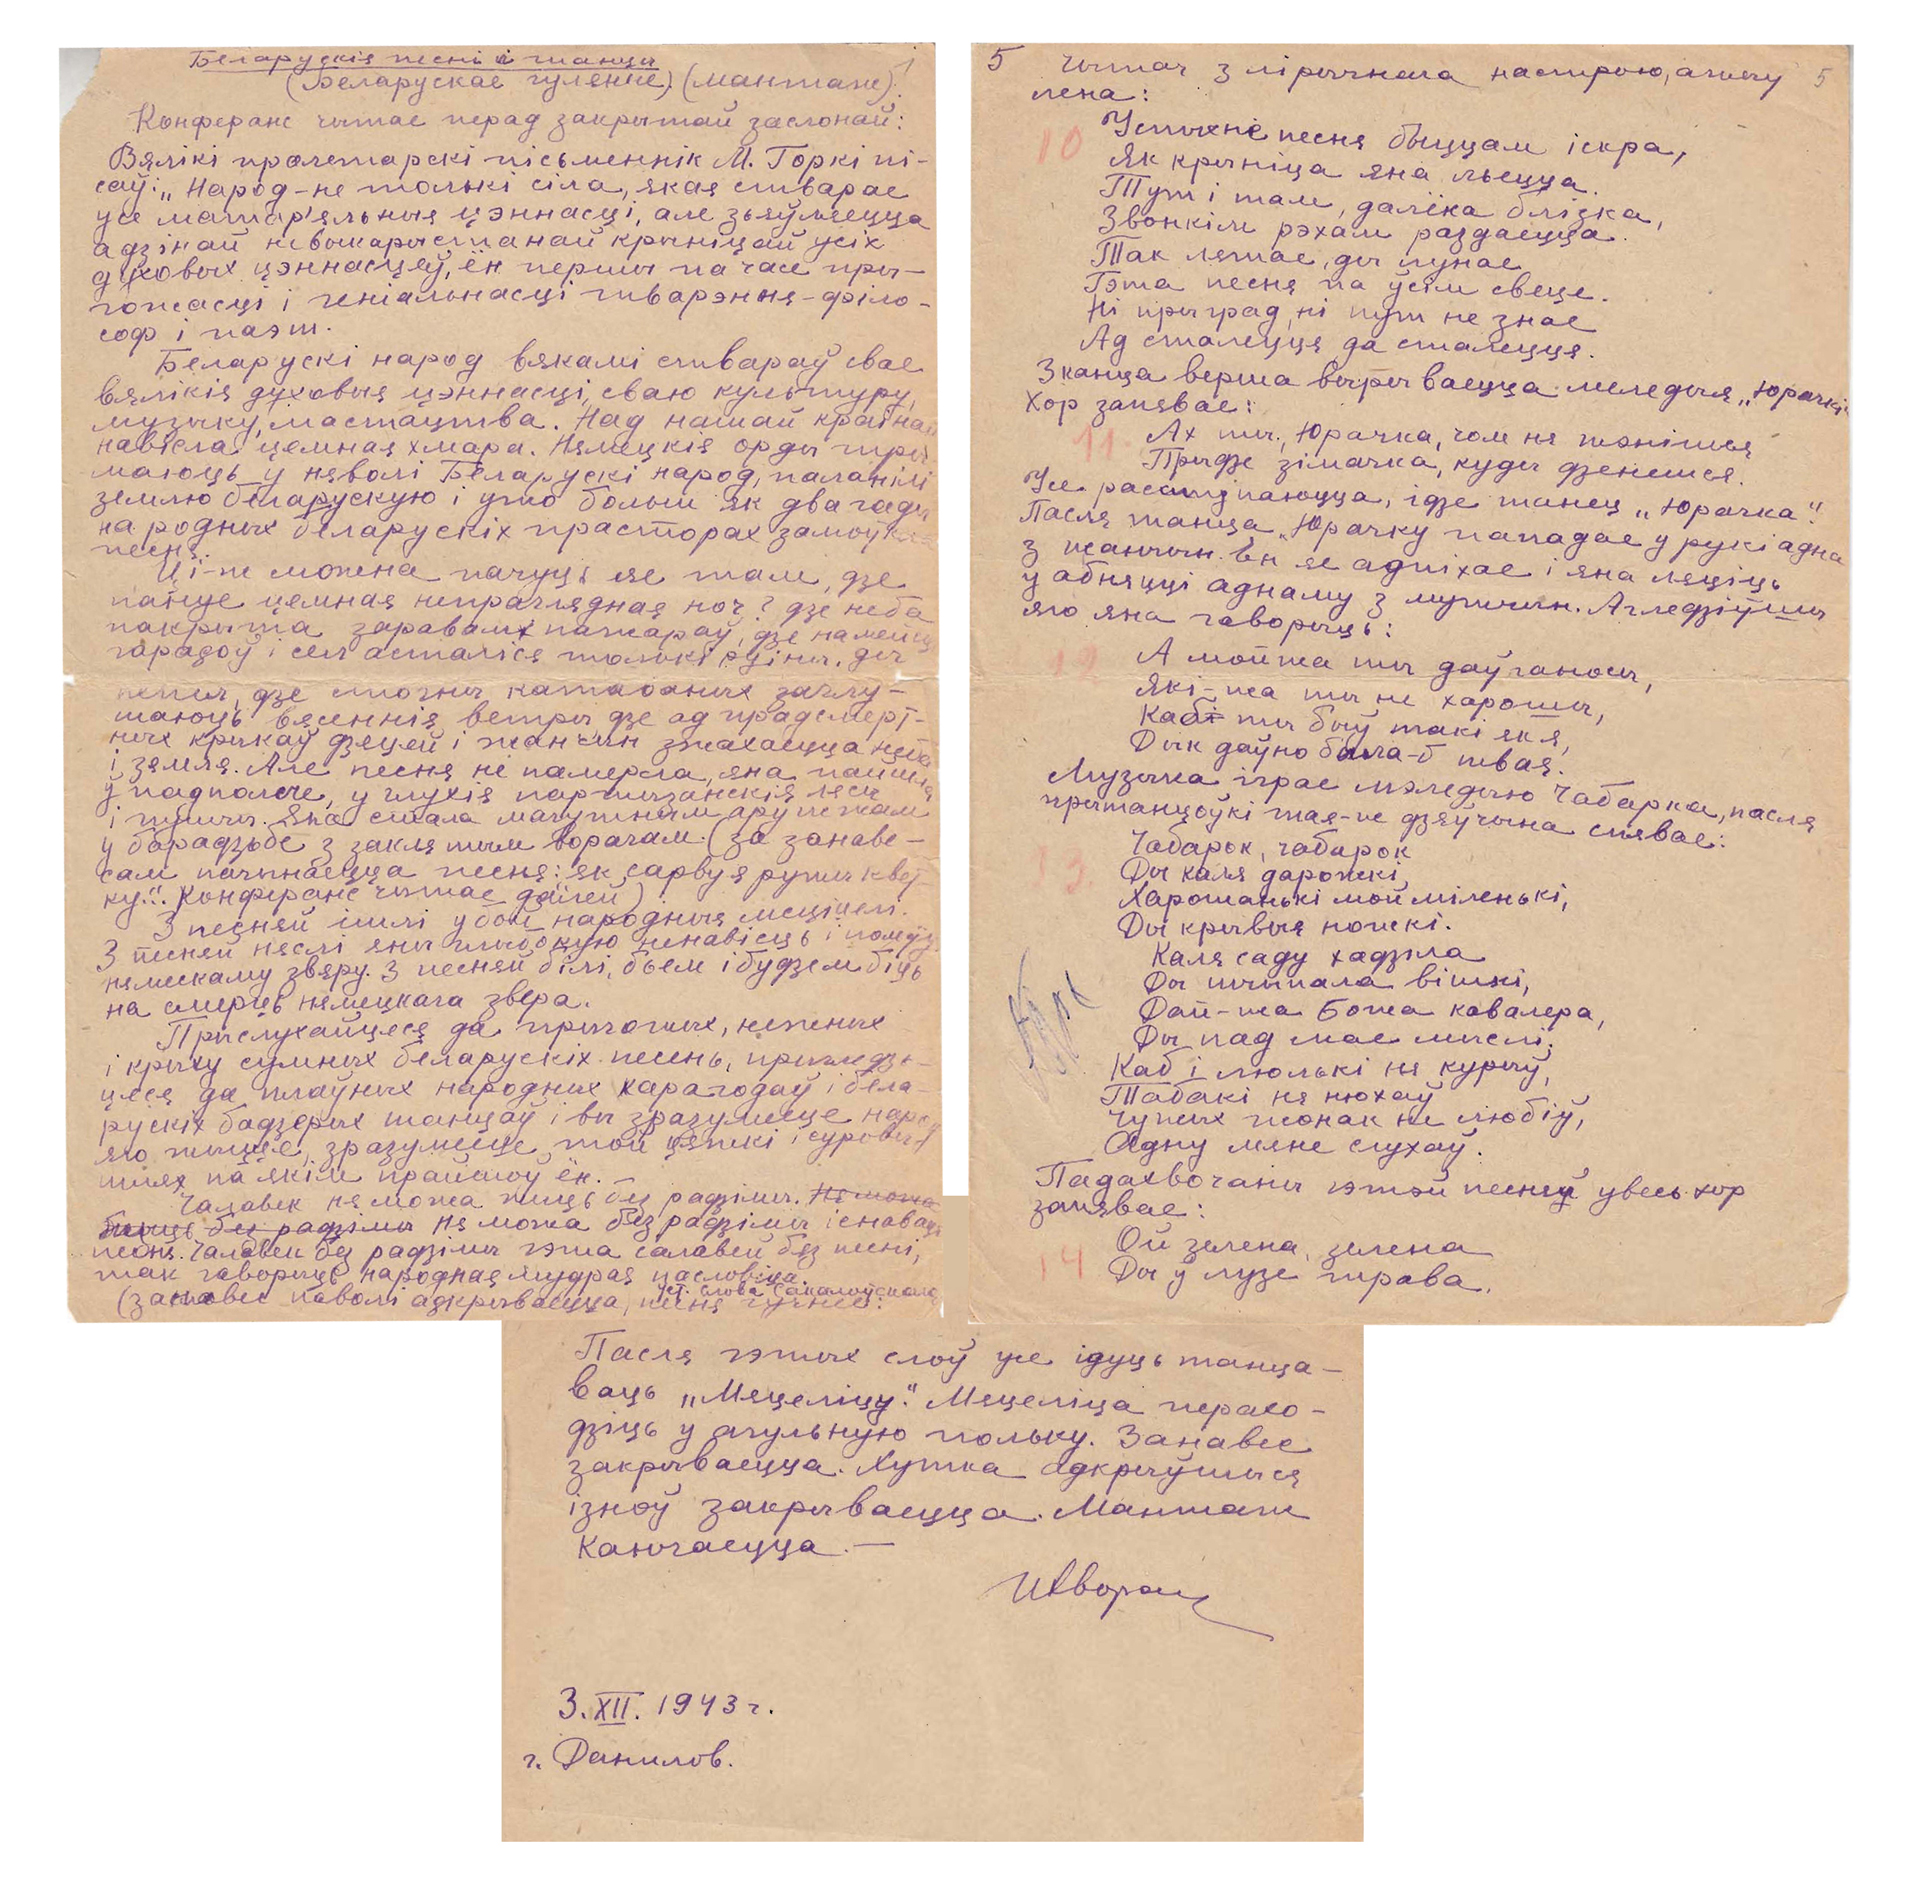 1
Беларускія песні і танцы
(Беларускае гулянне) (мантаж).
Конферанс чытае перад закрытай заслонай:
Вялікі пралетарскі пісьменнік М. Горкі пі-
саў: „Народ-не толькі сіла, якая стварае
усе матар'яльныя цэннасці, але зьяўляецца
адзінай невычарыстанай крыніцай усіх
духовых цэннасцяў, ён першы па часе пры-
гожасці і геніальнасці тварэння-філо-
соф і паэт.
Беларускі народ вякамі ствараў свае
вялікія духовыя цэннасці, сваю культуру,
музыку, мастацтва. Над нашай краінай
навісла цемная хмара. Нямецкія орды тры
маюць у няволі Беларускі народ, паланілі
землю беларускую і ужо больш як два гады
на родных беларускіх прасторах замоўкла
песня.
Ці-ж можна пачуць яе там, дзе
пануе цемная непраглядная ноч? дзе неба
пакрыта заравамі пажараў, дзе на месцы
гарадоў і сел асталіся толькі руіны, ды
попел, дзе стогны катаваных заглу-
шаюць вясеннія ветры дзе ад прадсмерт-
ных крыкаў дзяцей і жанчын зжахаецца неба
і зямля. Але песня не памерла, яна пайшла
ў падполле, у глухія партызанскія лясы
і пушчы. Яна стала магутным аружжам
у барадзьбе з заклятым ворагам. (за занаве-
сам пачынаецца песня: „як сарву я ружы квет-
ку". Конферанс чытае далей)
З песняй ішлі у бой народныя месціцелі.
З песняй няслі яны глыбокую ненавісць і помсту
нямецкаму звяру. З песняй білі, бьем і будзем біць
на смерць нямецкага звера.
Прыслухайцеся да прыгожых, нежных
і крыху сумных беларускіх песень, прыгледзь-
цеся да плаўных народных харагодаў і бела-
рускіх бадзёрых танцаў і вы зразумееце народ
яго жыццё, зразумееце той цяжкі і суровы
шлях па якім прайшоў ён.
Чалавек ня можа жыць без радзімы. Ня можа
быць без радзімы Ня можа без радзімы існаваць
песня. Чалавек без радзімы гэта салавей без песні,
так гаворыць народная мудрая пасловіца.
(занавес паволі адкрываецца, песня гучнее:
5 5
Чытач з лірычнага настрою, агалу
лена:
10 Успыхне песня быццам іскра,
Як крыніца яна льецца.
Тут і там, далёка блізка,
Звонкім рэхам раздаецца.
Так лятае, ды лунае
Гэта песня па ўсім свеце.
Ні прыград, ні пут не знае
Ад сталецця да сталецця.
З канца верша вырываецца мелодыя „Юрачкі"
Хор запявае:
11. Ах ты, Юрачка, чом ня жэнішся
Прыдзе зімачка, куды дзенешся.
Усе расступаюцца, ідзе танец „Юрачка".
Пасля танца „Юрачку" пападае у рукі адна
з жанчын. Ён яе адпіхае і яна ляціць
у абняцці аднаму з мужчын. Агледзіўшы
яго яна гаворыць:
12 А мой жа ты даўганосы,
Які-жа ты не харошы,
Каб ты быў такі як я,
Дык даўно была-б твая.
Музыка іграе мэледыю Чабарка, пасля
прытанцоўкі тая-ж дзяўчына спявае:
13. Чабарок, чабарок
Ды каля дарожкі,
Харошанькі мой міленькі,
Ды крывыя ножкі.
Каля саду хадзіла
Ды шчыпала вішні,
Дай-жа Божа кавалера,
Ды пад мае мыслі.
Каб і люлькі ня курыў,
Табакі ня нюхаў
Чужых жонак не любіў,
Адну мяне слухаў.
Падахвочаны гэтэй песняй увесь хор
запявае:
14 Ой зелена, зелена
Ды ў лузе трава.
Пасля гэтых слоў усе ідуць танца-
ваць „Мяцеліцу". Мяцеліца перахо-
дзіць у агульную польку. Занавес
закрываецца. Хутка адкрыўшыся
ізноў закрываецца. Мантаж
Канчаецца. —
3. XII. 1943 г.
г. Данилов.